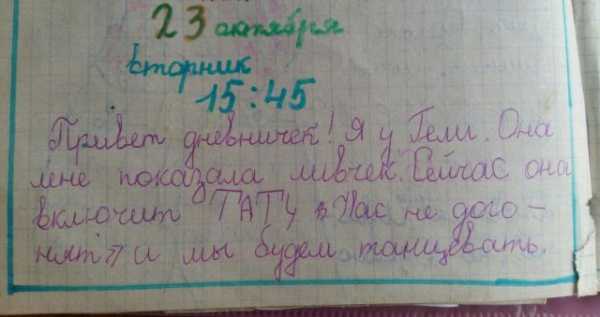 23 октября
вторник
15:45
Привет дневничек! Я у Гели. Она
мне показала ливчек. Сейчас она
включит ТАТУ «Нас не дого-
нят» и мы будем танцевать.